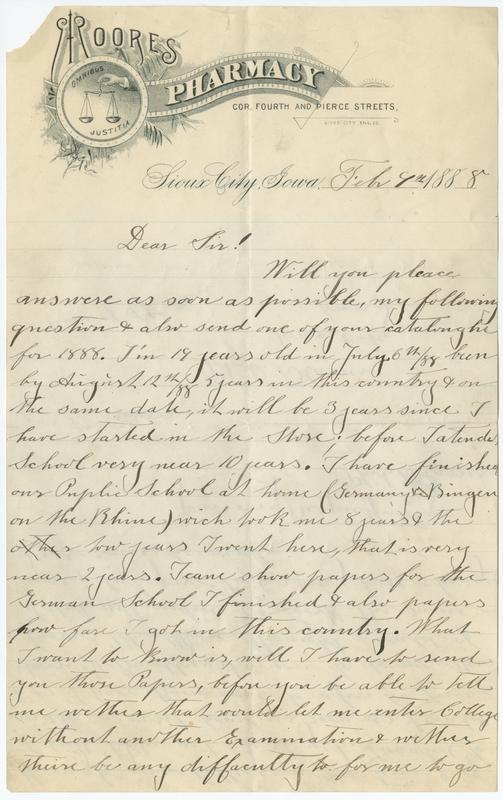 MOORES
PHARMACY
OMNIBUS
JUSTITIA
COR. FOURTH AND PIERCE STREETS,
Sioux City, Iowa, Feb 9th 1888
Dear Sir!
Will you pleace
answere as soon as possible, my following
question & also send one of your catalonghe
for 1888. I'm 19 years old in July 6th/88 been
by August 12th/88 5 years in this country & on
the same date, it will be 3 years since I
have started in the Store; before I atende
School very near 10 years. I have finished
our Puplic School at home (Germany Bingen
on the Rhine) wich took me 8 years & the
other tow years I went here, that is very
near 2 years. I cane show papers for the
German School I finished & also papers
how fare I got in this country. What
I want to know is, will I have to send
you those Papers, before you be able to tell
me wether that would let me enter College
without another Examination & wether
theire be any diffaculty to for me to go